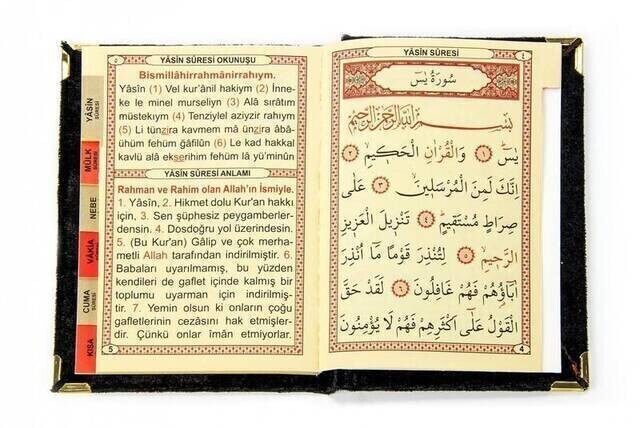 YÂSÎN SÛRESİ OKUNUŞU
Bismillâhirrahmânirrahıym.
Yâsîn (1) Vel kur'ânil hakiym (2) İnne-
ke le minel murseliyn (3) Alâ sırâtım
müstekıym (4) Tenziylel aziyzir rahıym
(5) Li tünzira kavmem mâ ünzira âbâ-
ühüm fehüm ğâfilûn (6) Le kad hakkal
kavlü alâ ekserihim fehüm lâ yü'minûn
YÂSÎN SÛRESİ ANLAMI
Rahman ve Rahim olan Allah'ın İsmiyle.
1. Yâsîn, 2. Hikmet dolu Kur'an hakkı
için, 3. Sen şüphesiz peygamberler-
densin. 4. Dosdoğru yol üzerindesin.
5. (Bu Kur'an) Gâlip ve çok merha-
metli Allah tarafından indirilmiştir. 6.
Babaları uyarılmamış, bu yüzden
kendileri de gaflet içinde kalmış bir
toplumu uyarman için indirilmiş-
tir. 7. Yemin olsun ki onların çoğu
gafletlerinin cezâsını hak etmişler-
dir. Çünkü onlar îmân etmiyorlar.
5
YÂSÎN
SÛRESİ
MÜLK
SÛRESİ
NEBE
VÂKIA
CUMA
SÛRESİ
KISA
YÂSÎN SÛRESİ
٤
سُورَةُ يٰسٓ
بِسْمِ اللّٰهِ الرَّحْمٰنِ الرَّحِيمِ
يٰسٓ ﴿١﴾ وَالْقُرْاٰنِ الْحَكِيمِ ﴿٢﴾
اِنَّكَ لَمِنَ الْمُرْسَلِينَ ﴿٣﴾ عَلٰى
صِرَاطٍ مُسْتَقِيمٍ ﴿٤﴾ تَنْزِيلَ الْعَزِيزِ
الرَّحِيمِ ﴿٥﴾ لِتُنْذِرَ قَوْمًا مَٓا اُنْذِرَ
اٰبَٓاؤُهُمْ فَهُمْ غَافِلُونَ ﴿٦﴾ لَقَدْ حَقَّ
الْقَوْلُ عَلٰٓى اَكْثَرِهِمْ فَهُمْ لَا يُؤْمِنُونَ
4